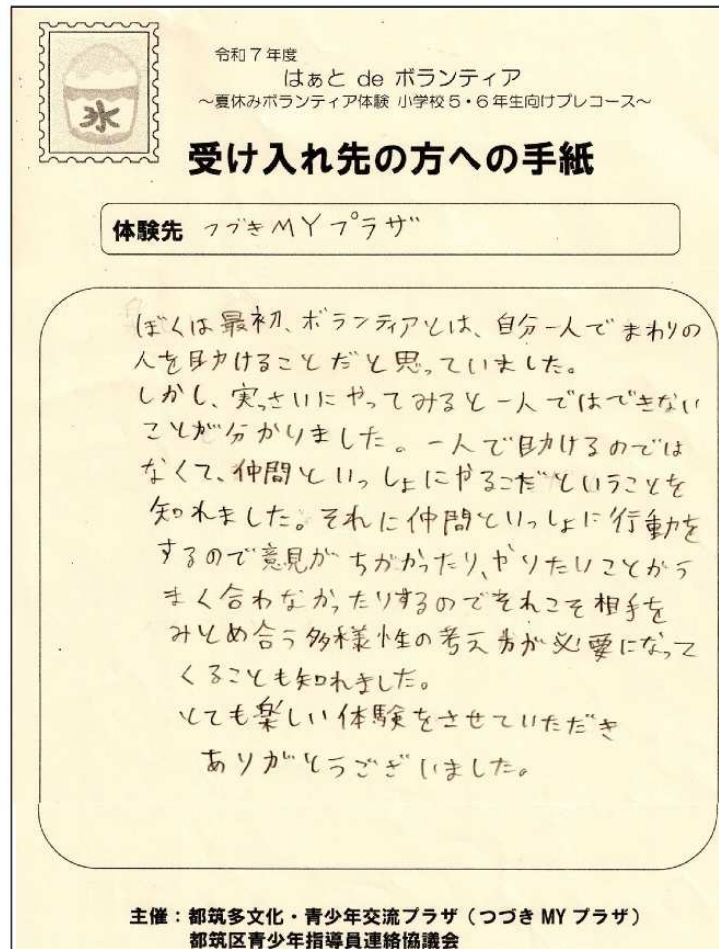 氷
令和7年度
はぁと de ボランティア
～夏休みボランティア体験 小学校5・6年生向けプレコース～
受け入れ先の方への手紙
体験先 つづきMYプラザ
ぼくは最初、ボランティアとは、自分一人でまわりの
人を助けることだと思っていました。
しかし、実っさいにやってみると一人ではできない
ことが分かりました。一人で助けるのでは
なくて、仲間といっしょにやるこだということを
知れました。それに仲間といっしょに行動を
するので意見がちがかったり、やりたいことがう
まく合わなかったりするのでそれこそ相手を
みとめ合う多様性の考え方が必要になって
くることも知れました。
とても楽しい体験をさせていただき
ありがとうございました。
主催：都筑多文化・青少年交流プラザ（つづき MY プラザ）
都筑区青少年指導員連絡協議会